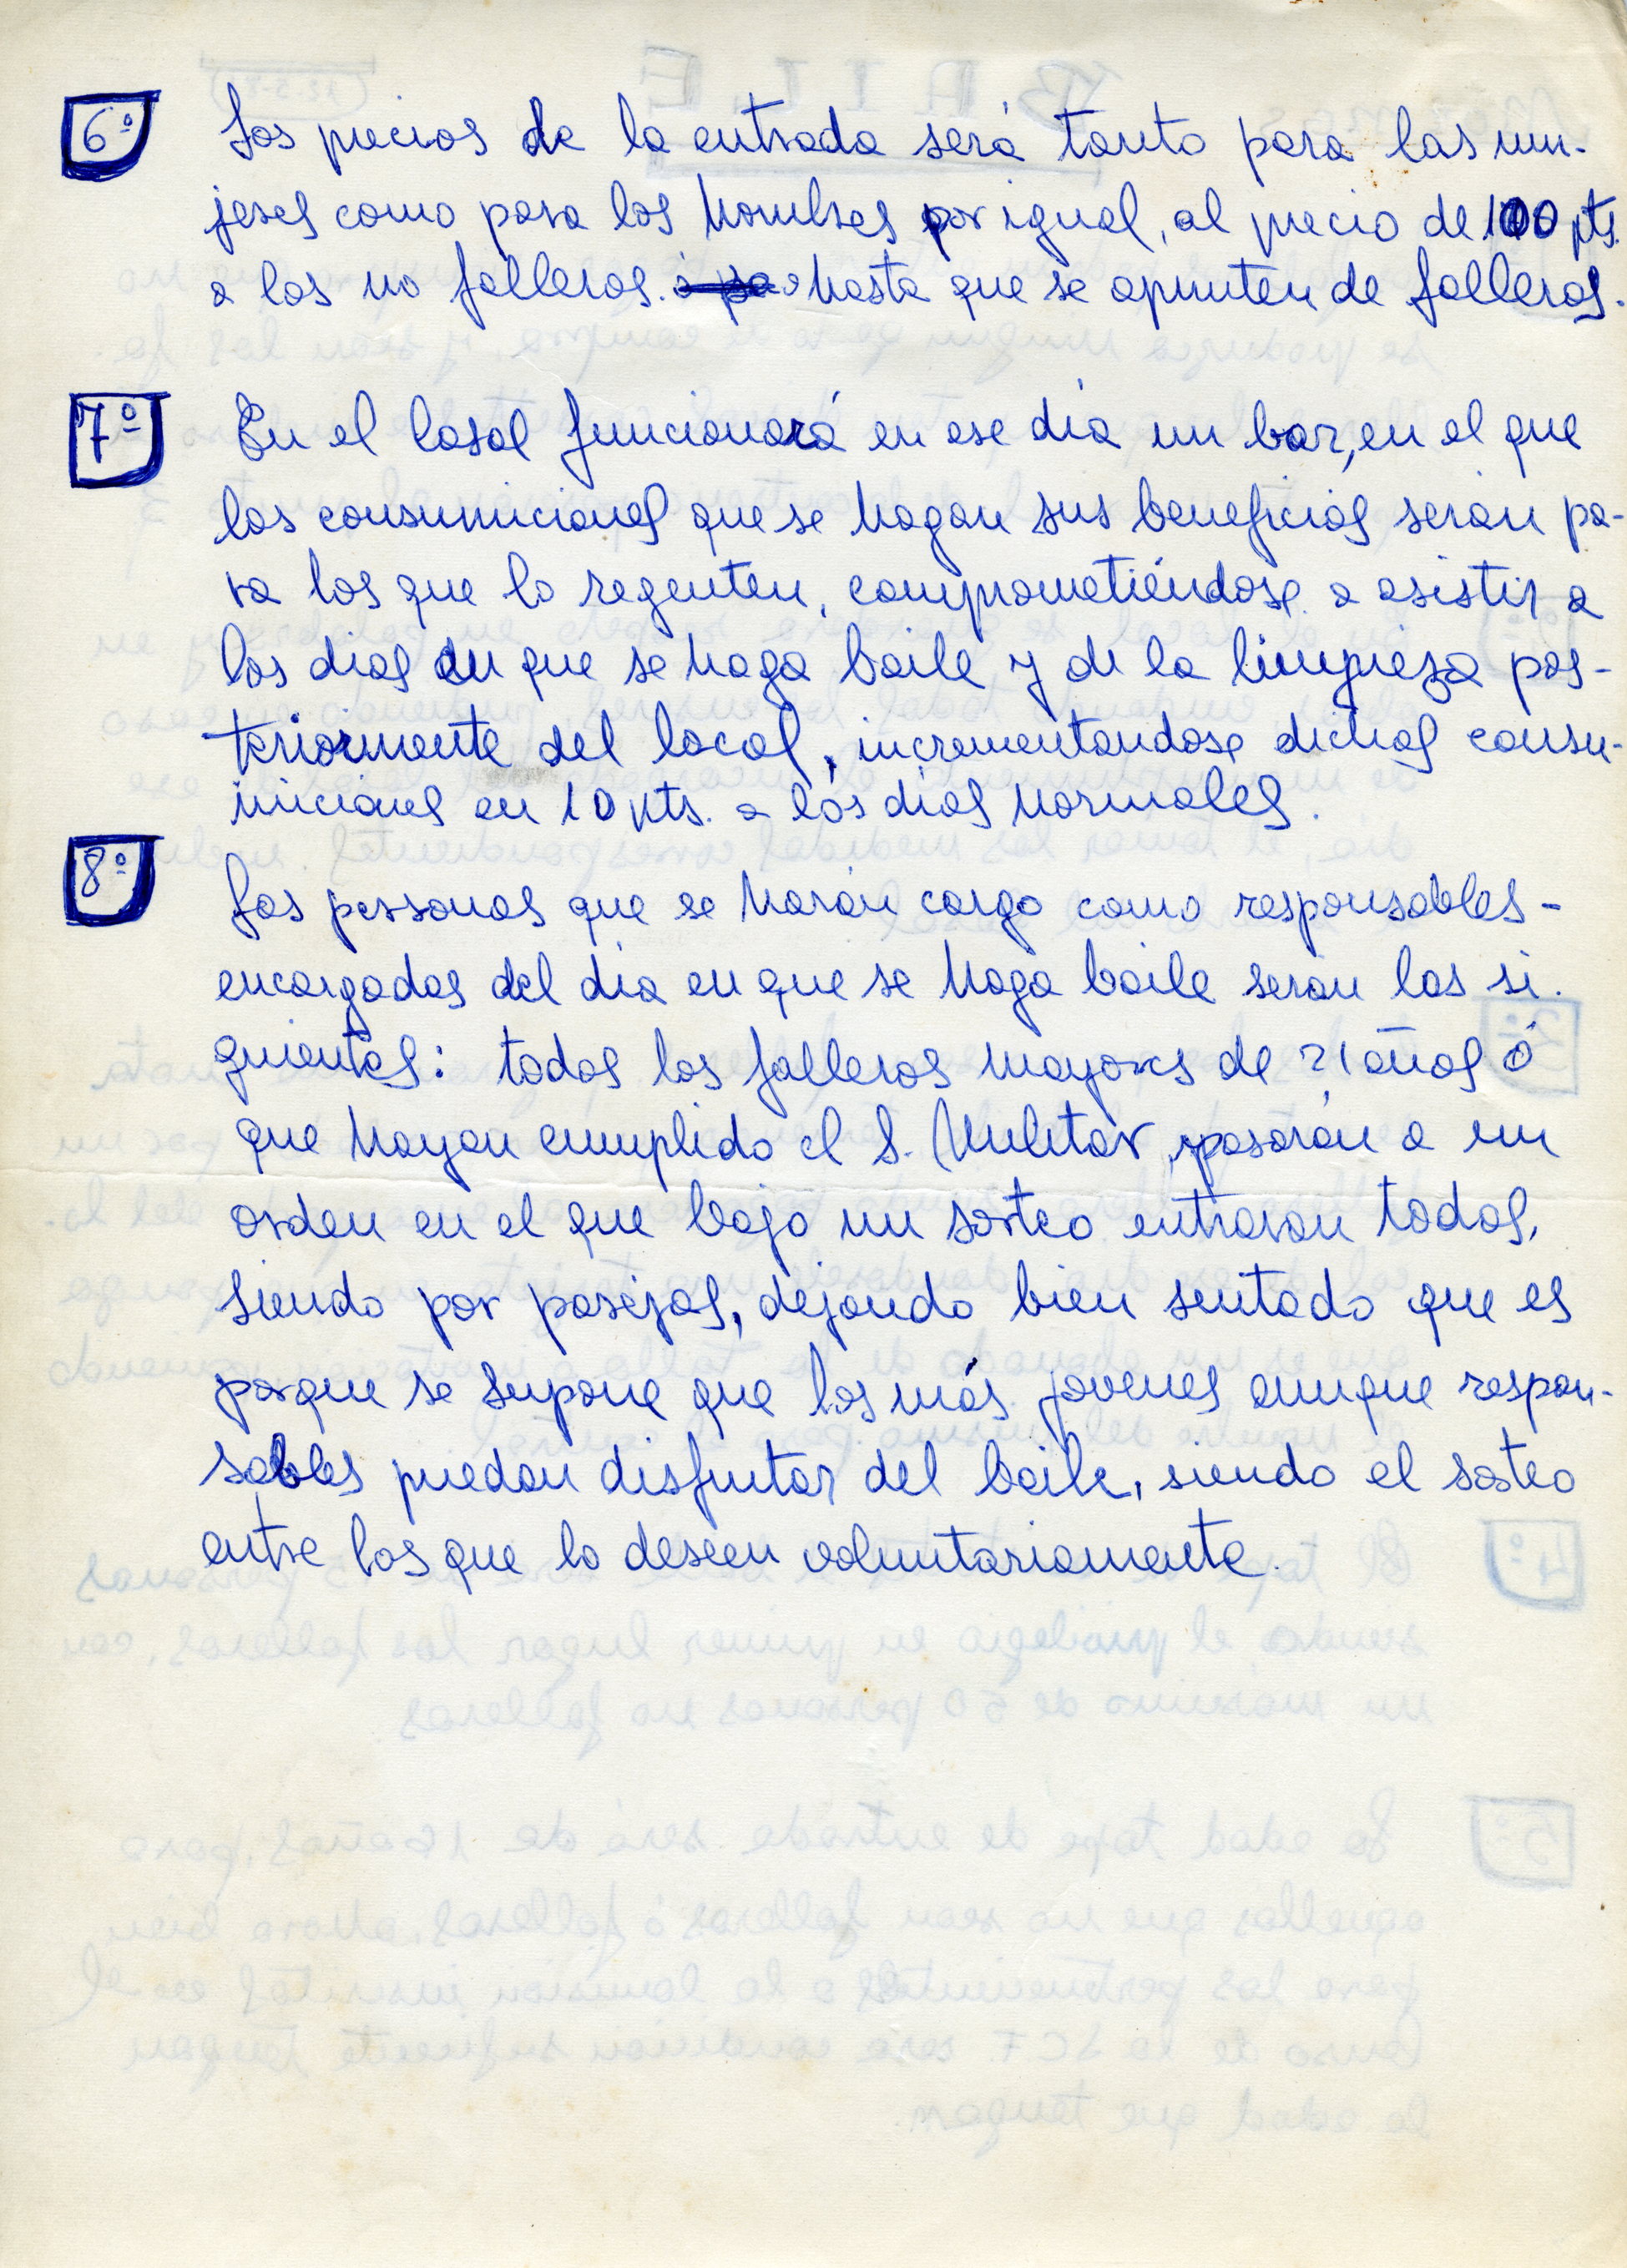 6º Los precios de la entrada será tanto para las mu-
jeres como para los hombres por igual, al precio de 100 pts.
a los no falleros. hasta que se apunten de falleros.
7º En el Casal funcionará en ese día un bar, en el que
las consumiciones que se hagan sus beneficios serán pa-
ra los que lo regenten, comprometiéndose a asistir a
los dias en que se haga baile y de la limpieza pos-
teriormente del local, incrementandose dichas consu-
miciones en 10 pts. a los dias normales.
8º Las personas que se harán cargo como responsables-
encargados del dia en que se haga baile seran las si-
guientes: todos los falleros mayores de 21 años ó
que hayan cumplido el S. Militar, pasarán a un
orden en el que bajo un sorteo entraran todos,
siendo por parejas, dejando bien sentado que es
porque se supone que los más jovenes aunque respon-
sables puedan disfrutar del baile, siendo el sorteo
entre los que lo deseen voluntariamente.